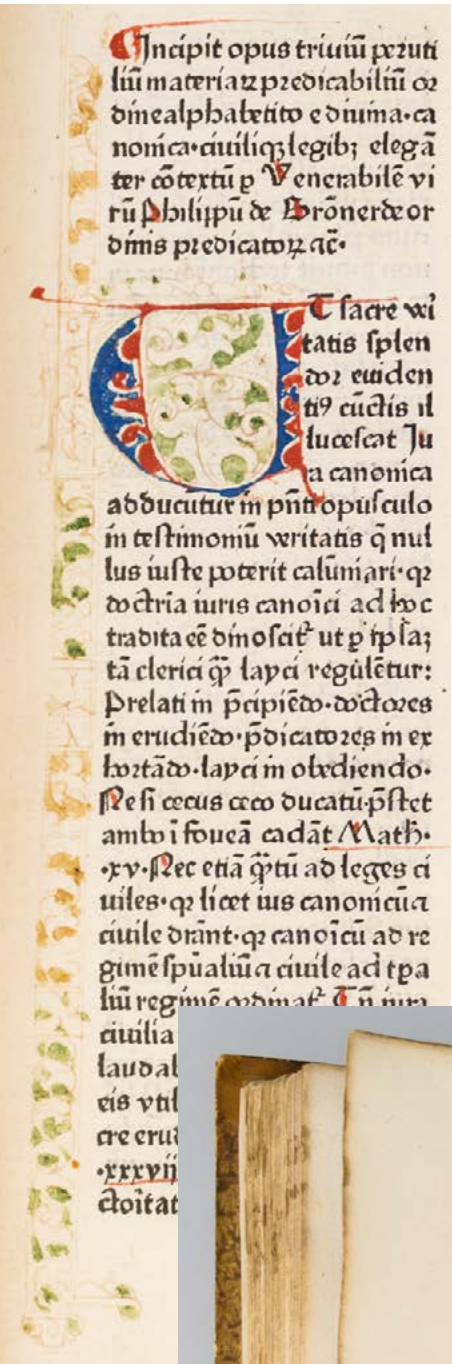 Incipit opus triuiū perutі
liū materiaꝝ predicabiliū or
dine alphabetico e diuina·ca
nonica·ciuiliqꝫ legibꝫ elegā
ter cōtextū ꝑ Venerabilē vi
rū Philippū de Brōnerde or
dinis predicatoꝝ ac̄·
UT sacre vēi
tatis splen
dor euiden
tiꝰ cūctis il
lucescat Iu
ra canonica
adducūtur in pn̄ti opusculo
in testimoniū veritatis q̄ nul
lus iuste poterit calūniari· qꝛ
doctrīa iuris canoīci ad hoc
tradita eē dinoscit᷑ ut ꝑ ip̄saꝫ
tā clerici qꝫ̄ layci regulētur:
Prelati in p̄cipiēdo·doctores
in erudiēdo·p̄dicatores in ex
hortādo·layci in obediendo·
Ne si cecus ceco ducatū·p̄stet
ambo ī foueā cadāt Math·
·xv· Nec etiā qꝫ̄tū ad leges ci
uiles· qꝛ licet ius canonicū ⁊
ciuile dr̄ant· qꝛ canoīcū ad re
gimē sp̄ualiū ⁊ ciuile ad tp̄a
liū regimē ordinat᷑ Tn̄ iura
ciuilia
laudab
eis vtil
cre erud
·xxxvii
ctoītat